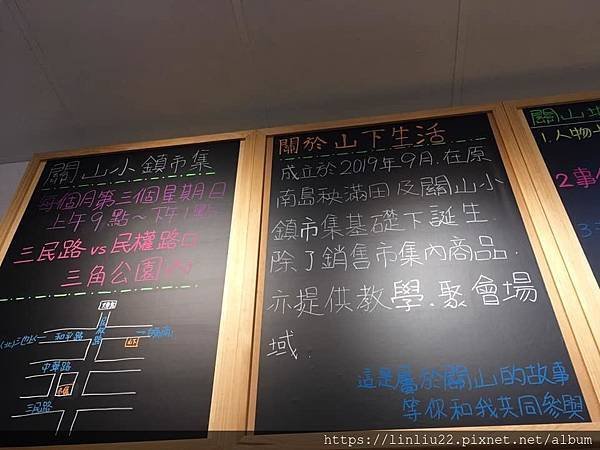 關山小鎮市集
每個月第三個星期日
上午9點~下午1點
三民路 vs 民權路口
三角公園
和平路
中華路
三民路
關於山下生活
成立於2019年9月.在原
南島秧滿田及關山小
鎮市集基礎下誕生.
除了銷售市集內商品.
亦提供教學.聚會場
域.
這是屬於關山的故事
等你和我共同參與
關山
1.人物
2事
3
https://linliu22.pixnet.net/album